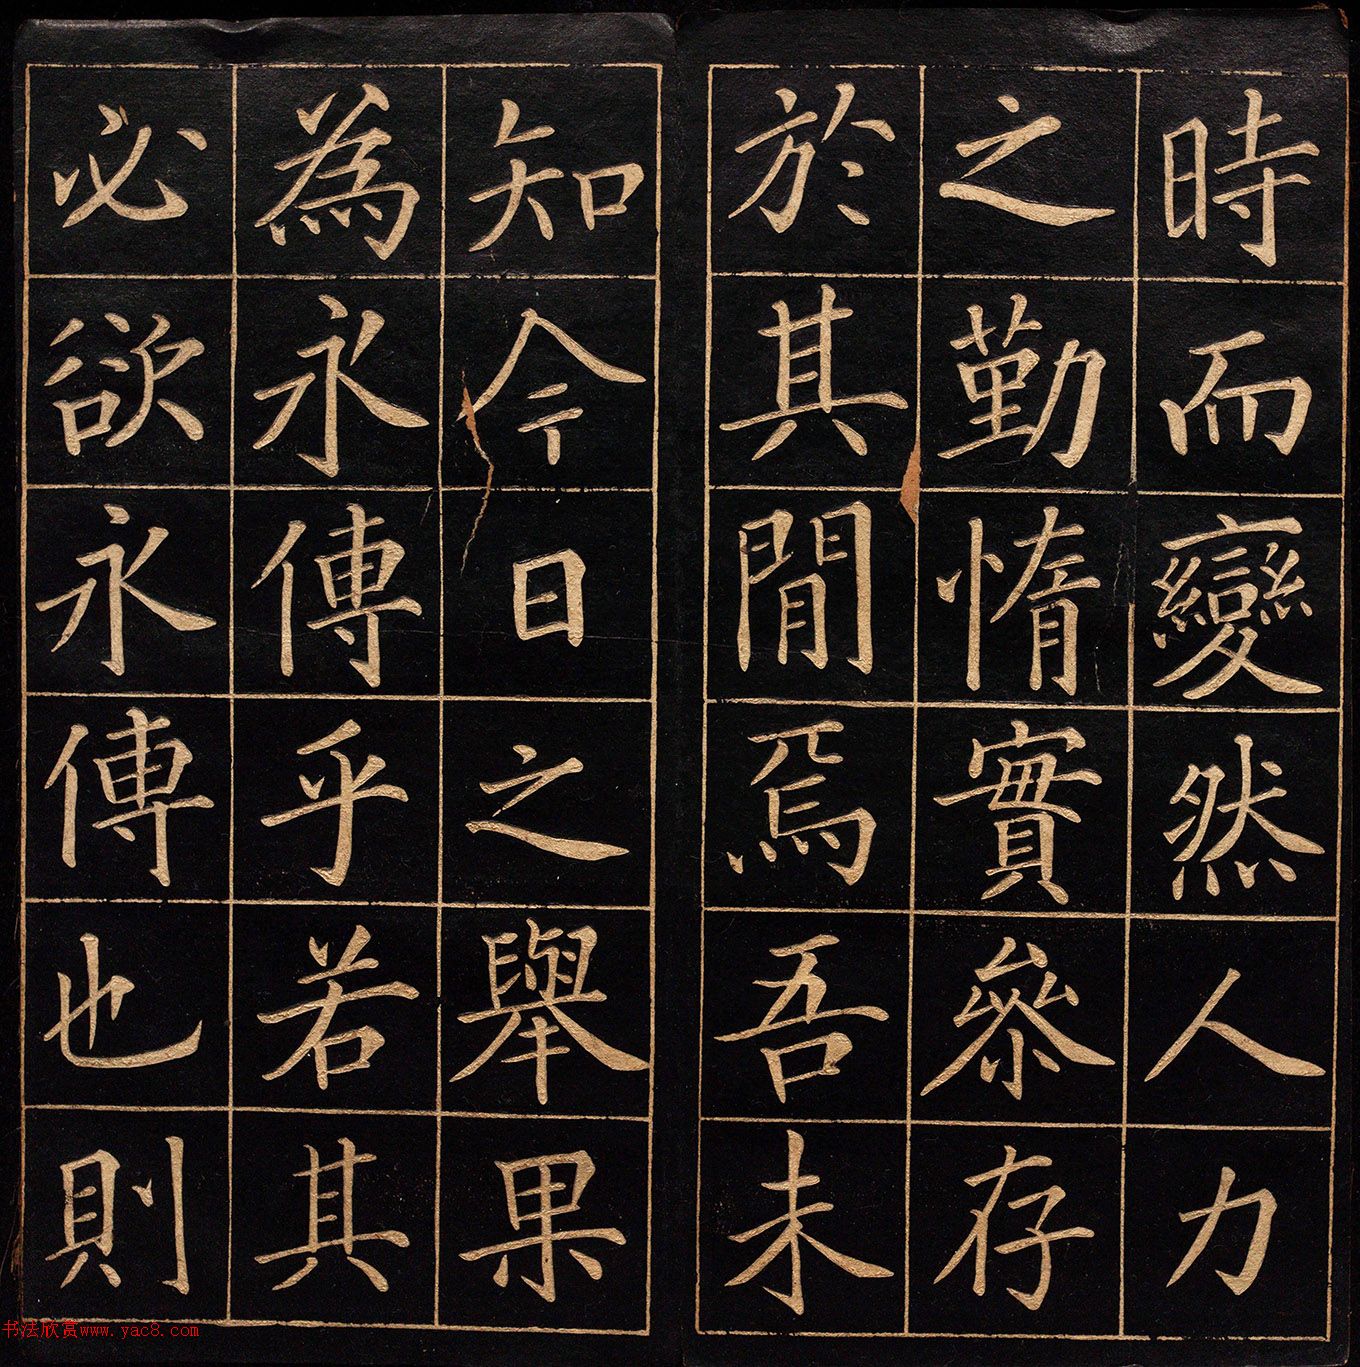 時而變然人力
之勤惰實參存
於其閒焉吾未
知今日之舉果
為永傳乎若其
必欲永傳也則
书法欣赏www.yac8.com